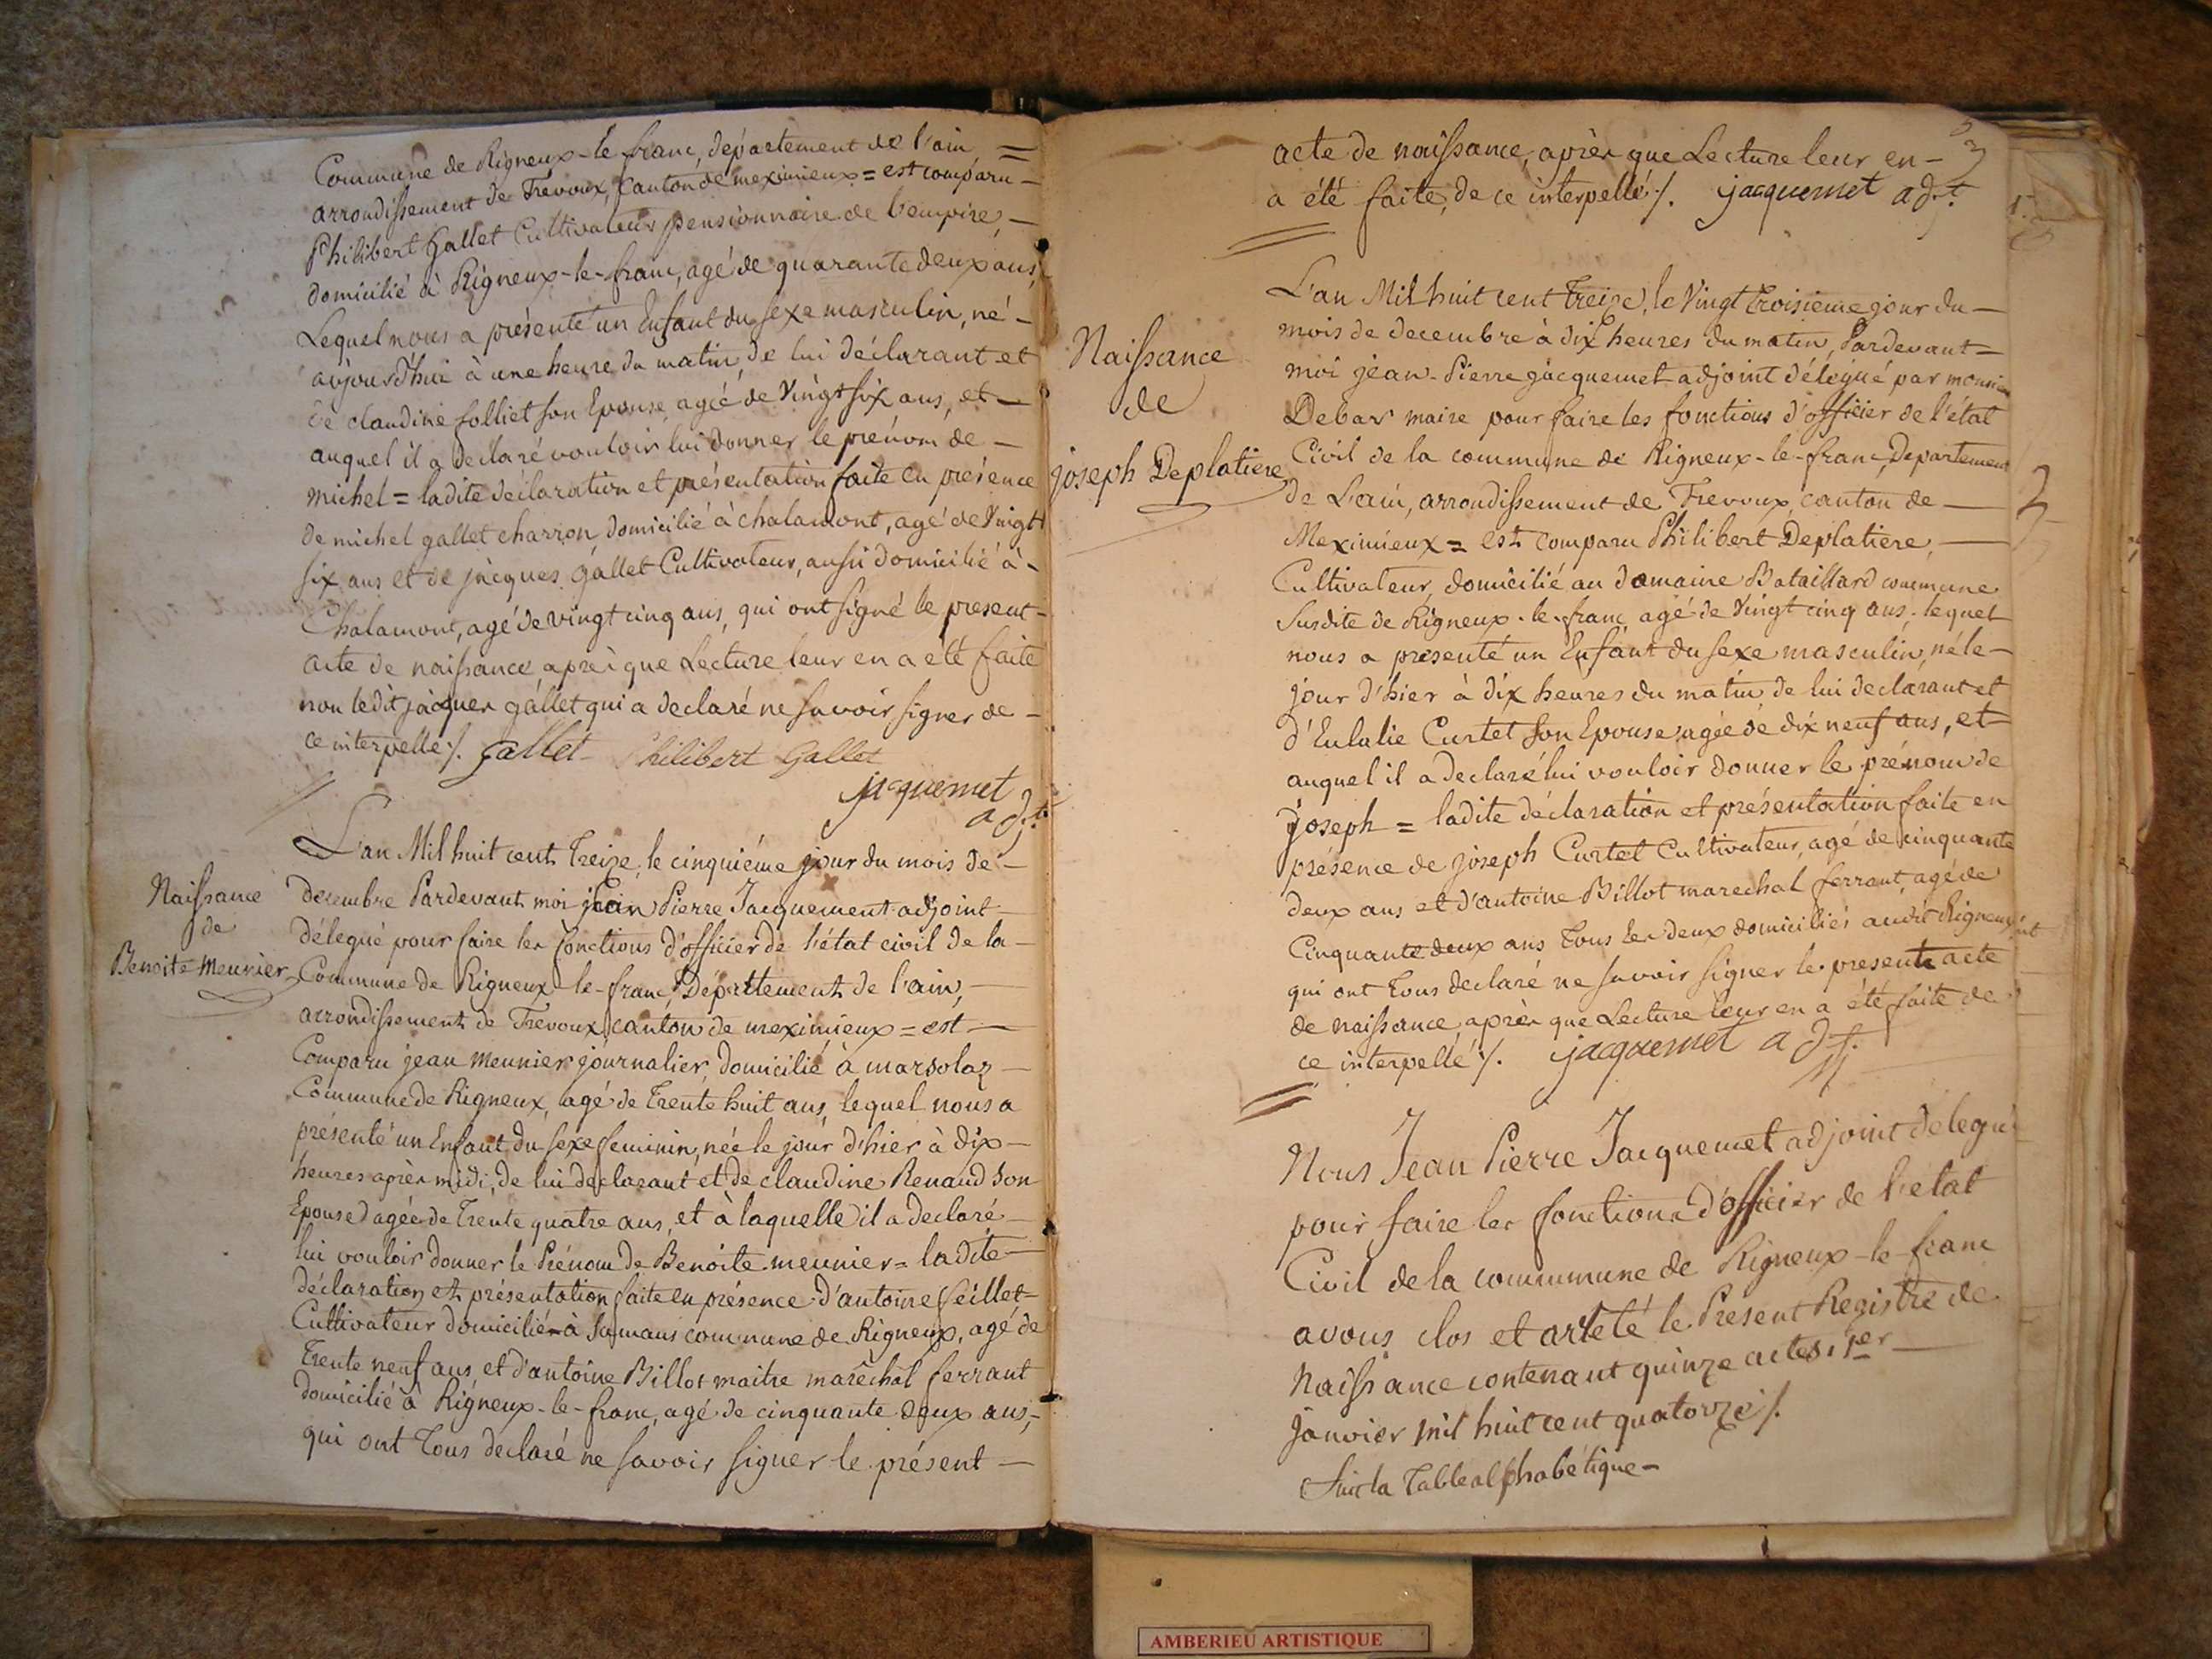 Commune de Rigneux-le franc, département de l'ain =
arrondissement de Trévoux, Canton de meximieux = est comparu -
Philibert Gallet Cultivateur pensionnaire de l'empire, -
domicilié à Rigneux-le-franc, agé de quarante deux ans,
Lequel nous a présenté un Enfant du sexe masculin, né -
aujourd'hui à une heure du matin, de lui déclarant et
de claudine folliet son Epouse, agée de Vingt six ans, et -
auquel il a déclaré vouloir lui donner le prénom de -
michel = ladite déclaration et présentation faite en présence
de michel gallet charron, domicilié à chalamont, agé de Vingt
six ans et de jacques gallet Cultivateur, aussi domicilié à -
Chalamont, agé de vingt cinq ans, qui ont signé le present -
acte de naissance, après que Lecture leur en a été faite
non ledit jacques gallet qui a declaré ne savoir signer de -
ce interpellé ./. Gallet Philibert Gallet
jacquemet
adjt.
Naissance
de
Benoite Meunier
L'an Mil huit cent treize, le cinquiéme jour du mois de -
decembre Pardevant moi jean Pierre Jacquement adjoint -
délegué pour faire les fonctions d'officier de l'état civil de la -
Commune de Rigneux-le-franc, Département de l'ain, -
arrondissement de Trevoux, canton de meximieux = est -
Comparu jean Meunier journalier, domicilié à marsolaz -
Commune de Rigneux, agé de Trente huit ans, lequel nous a
présenté un Enfant du sexe feminin, née le jour d'hier à dix -
heures après midi, de lui declarant et de claudine Renaud son
Epouse agée de Trente quatre ans, et à laquelle il a declaré -
lui vouloir donner le Prénom de Benoite meunier = ladite -
déclaration et présentation faite en présence d'antoine feillet -
Cultivateur domicilié à Samans commune de Rigneux, agé de
Trente neuf ans, et d'antoine Billot maitre maréchal ferrant
domicilié à Rigneux-le-franc, agé de cinquante deux ans, -
qui ont Tous declaré ne savoir signer le présent -
acte de naissance, après que Lecture leur en -
a été faite, de ce interpellé ./. jacquemet adjt.
Naissance
de
joseph Deplatiere
L'an Mil huit cent treize, le Vingt troisieme jour du -
mois de decembre à dix heures du matin, Pardevant -
moi jean-Pierre jacquemet adjoint délegué par monsieur
Debar maire pour faire les fonctions d'officier de l'état
Civil de la commune de Rigneux-le-franc, Departement
de L'ain, arrondissement de Trevoux, canton de -
Meximieux = est comparu Philibert Deplatiere, -
Cultivateur, domicilié au domaine Bataillard commune
Susdite de Rigneux-le-franc, agé de Vingt cinq ans, lequel
nous a présenté un Enfant du sexe masculin, né le -
jour d'hier à dix heures du matin, de lui declarant et
d'Eulalie Curtet son Epouse, agée de dix neuf ans, et -
auquel il a declaré lui vouloir donner le prénom de
joseph = ladite déclaration et présentation faite en
présence de joseph Curtet Cultivateur, agé de cinquante
deux ans et d'antoine Billot marechal ferrant, agé de
Cinquante deux ans, Tous les deux domiciliés audit Rigneux,
qui ont Tous declaré ne savoir signer le present acte
de naissance, après que Lecture leur en a été faite de
ce interpellé ./. jacquemet adjt.
Nous Jean Pierre Jacquemet adjoint delegué
pour faire les fonctions d'officier de l'etat
Civil de la commumune de Rigneux-le-franc
avons clos et arreté le Present Registre de
Naissance contenant quinze actes, 1er -
janvier mil huit cent quatorze ./.
Suit la Table alphabétique -
AMBERIEU ARTISTIQUE